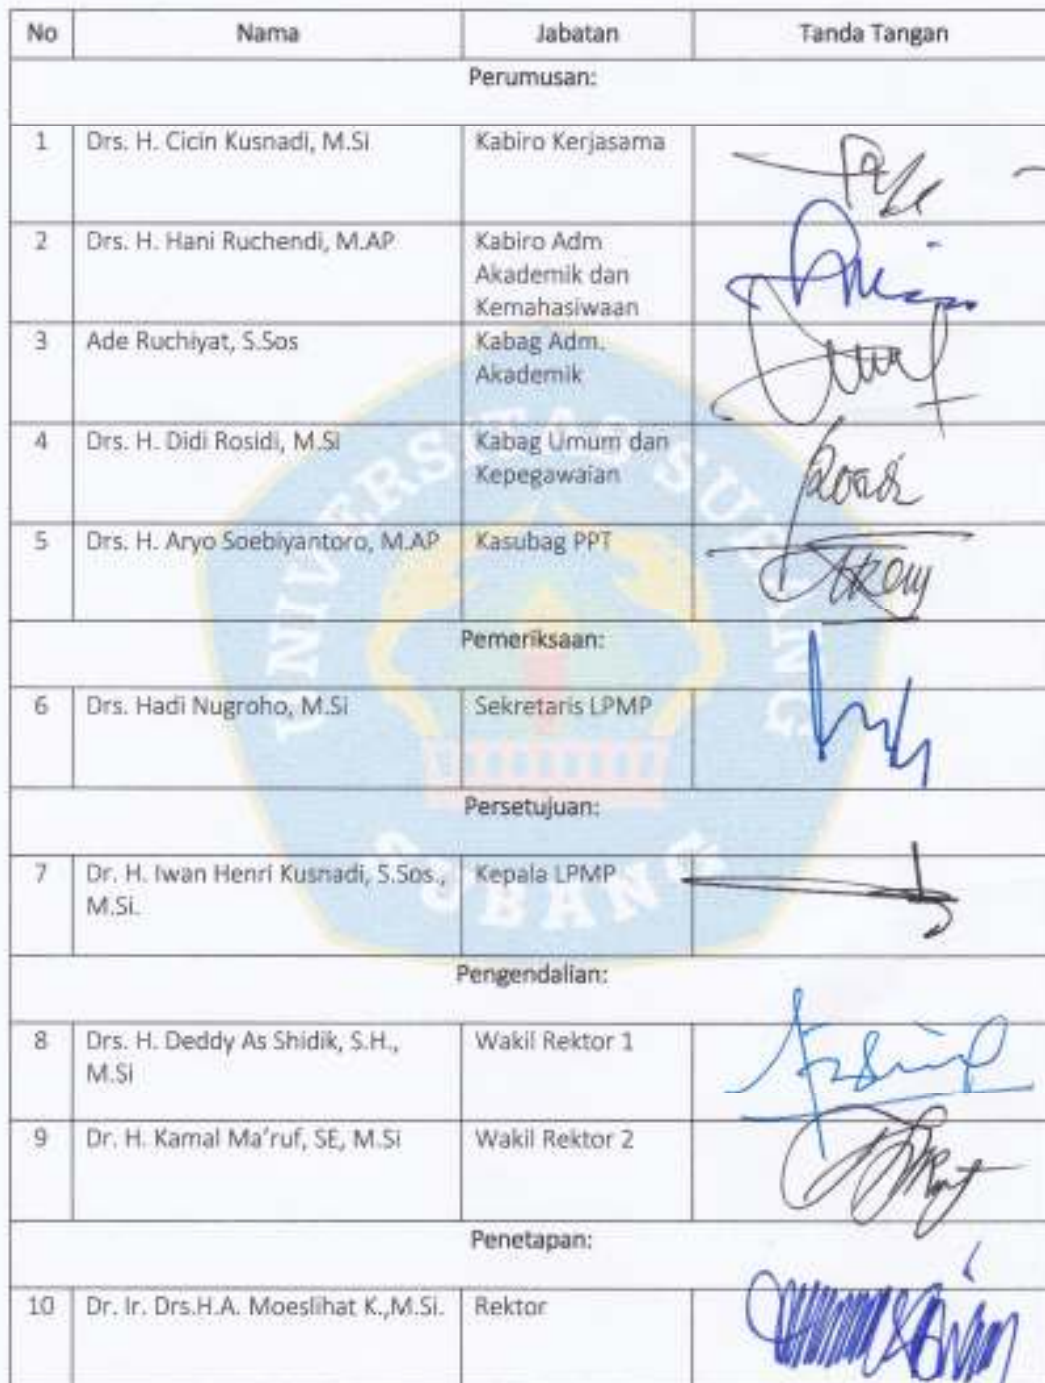 No Nama Jabatan Tanda Tangan
Perumusan:
1 Drs. H. Cicin Kusnadi, M.Si Kabiro Kerjasama
2 Drs. H. Hani Ruchendi, M.AP Kabiro Adm
Akademik dan
Kemahasiwaan
3 Ade Ruchiyat, S.Sos Kabag Adm.
Akademik
4 Drs. H. Didi Rosidi, M.Si Kabag Umum dan
Kepegawaian
5 Drs. H. Aryo Soebiyantoro, M.AP Kasubag PPT
Pemeriksaan:
6 Drs. Hadi Nugroho, M.Si Sekretaris LPMP
Persetujuan:
7 Dr. H. Iwan Henri Kusnadi, S.Sos., Kepala LPMP
M.Si.
Pengendalian:
8 Drs. H. Deddy As Shidik, S.H., Wakil Rektor 1
M.Si
9 Dr. H. Kamal Ma'ruf, SE, M.Si Wakil Rektor 2
Penetapan:
10 Dr. Ir. Drs.H.A. Moeslihat K.,M.Si. Rektor
UNIVERSITAS SUBANG
SUBANG